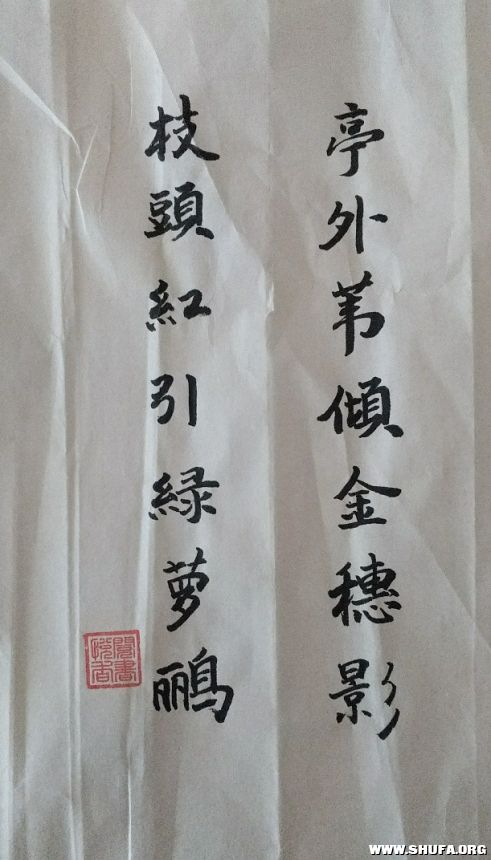 亭外苇傾金穗影
枝頭紅引緑萝鹂
WWW.SHUFA.ORG